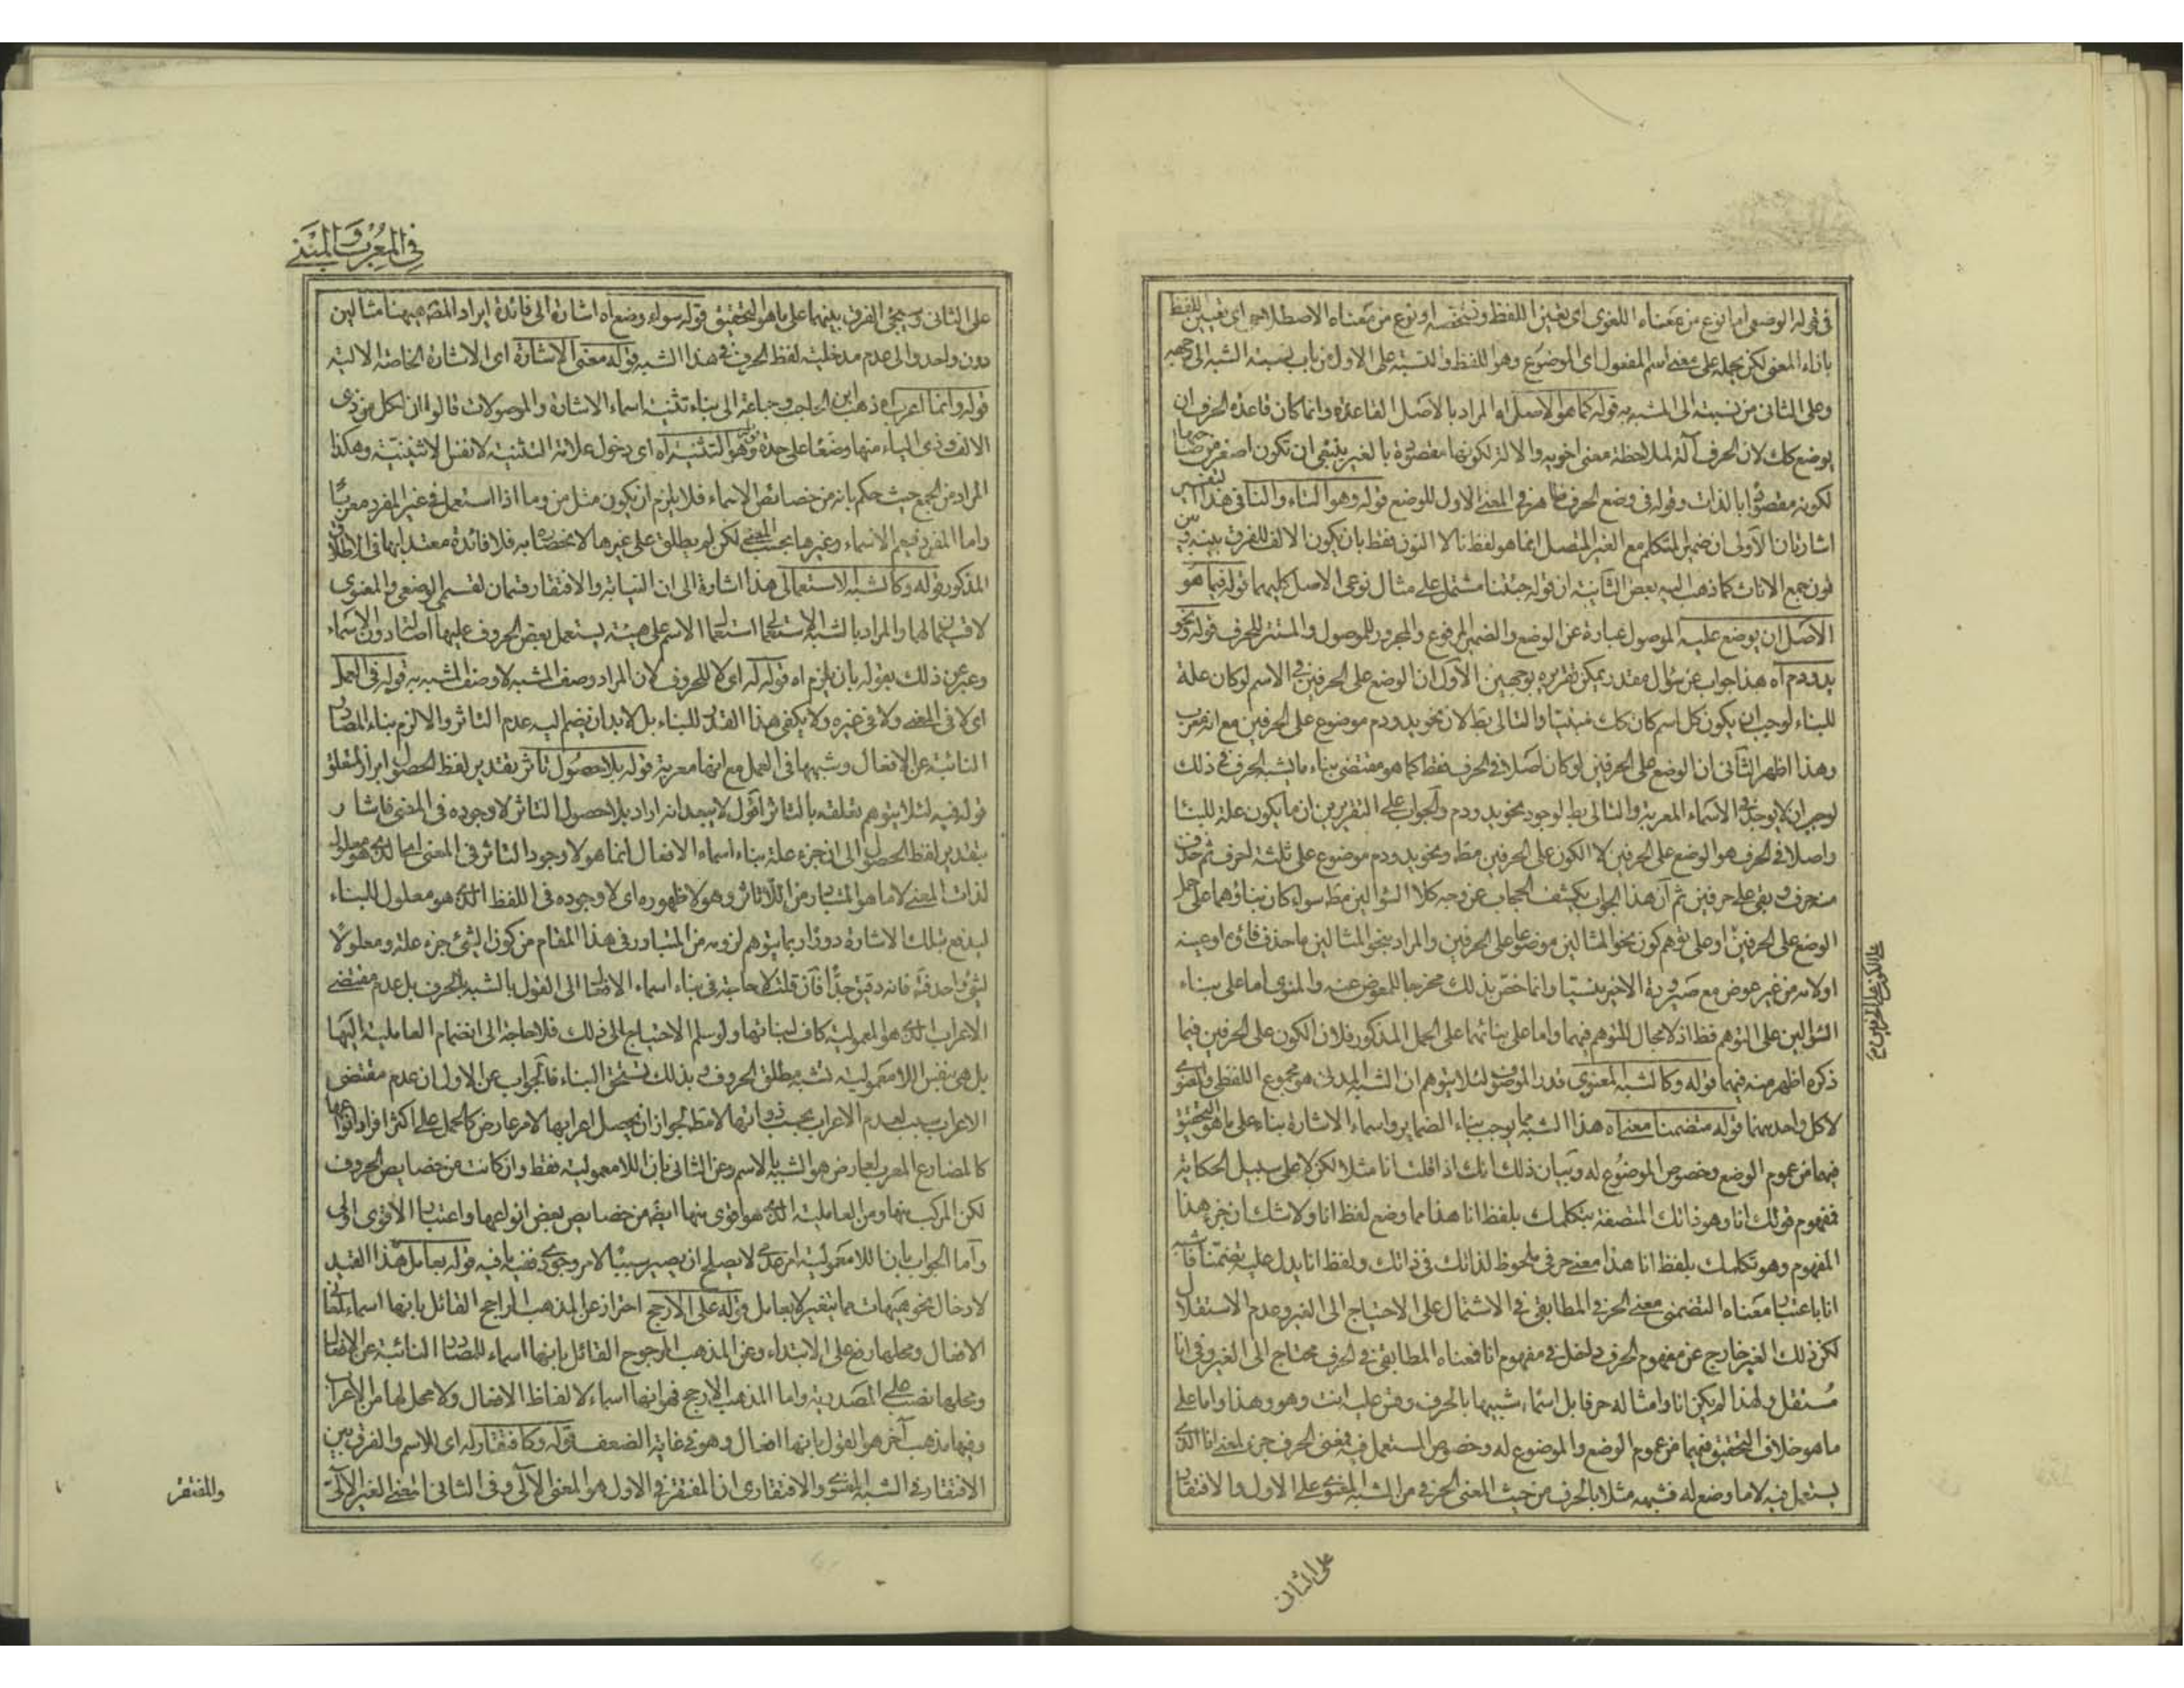 في قوله الوضعي اما نوع من معناه اللغوي اى تعيين اللفظ وتشخصه او نوع من معناه الاصطلاحى اى تعيين اللفظ
بازاء المعنى لكن يحمله على معنى اسم المفعول اى الموضوع وهو اللفظ والنسبة على الاول من باب نسبة الشبه الى وجهه
وعلى الثانى من نسبته الى المشبه به قوله كما هو الاصل اه المراد بالاصل القاعدة وانما كان قاعدة الحرف ان
يوضع كك لان الحرف آلة لملاحظة معنى اخويه والالة لكونها مقصودة بالغير ينبغى ان تكون اصغر من صاحبها
لكونه مقصودا بالذات وقوله فى وضع الحرف ظاهر فى المعنى الاول للوضع قوله وهو التاء والنا فى هذا التفسير
اشارتان الاولى ان ضمير المتكلم مع الغير المتصل انما هو لفظ نا لا النون فقط بان يكون الالف للفرق بينه وبين
نون جمع الاناث كما ذهب اليه بعض الثانية ان قوله جئتنا مشتمل على مثال نوعى الاصل كليهما قوله فيما هو
الاصل ان يوضع عليه الموصول عبارة عن الوضع والضمير المرفوع والمجرور للموصول والمستتر للحرف قوله ونحو
يد ودم اه هذا جواب عن سؤال مقدر يمكن تقريره بوجهين الاول ان الوضع على الحرفين فى الاسم لو كان علة
للبناء لوجب ان يكون كل اسم كان كك مبنيا والتالى بط لان نحو يد ودم موضوع على الحرفين مع انه معرب
وهذا اظهر الثانى ان الوضع على الحرفين لو كان اصلا فى الحرف فقط كما هو مقتضى بناء ما يشبه الحرف فى ذلك
لوجب ان لا يوجد فى الاسماء المعربة والتالى بط لوجود نحو يد ودم والجواب على التقريرين ان ما يكون علة للبناء
واصلا فى الحرف هو الوضع على الحرفين لا الكون على الحرفين مط ونحو يد ودم موضوع على ثلثة احرف ثم حذف
منه حرف وبقى على حرفين ثم ان هذا الجواب يكشف الحجاب عن وجه كلا السؤالين مط سواء كان بناؤهما على حمل
الوضع على الحرفين او على توهم كون نحو المثالين موضوعا على الحرفين والمراد بنحو المثالين ما حذف فاؤه او عينه
اولامه من غير عوض مع صيرورة الاخير نسيا وانما خص بذلك مخرجا للمعوض عنه والمنوى اما على بناء
السؤالين على التوهم فظ اذ لا مجال للتوهم فيهما واما على بنائهما على الحمل المذكور فلان الكون على الحرفين فيما
ذكره اظهر منه فيهما قوله وكالشبه المعنوى قدر الموصوف لئلا يتوهم ان الشبه المدنى هو مجموع اللفظى والمعنوى
لا كل واحد منهما قوله متضمنا معناه هذا الشبه مما يوجب بناء الضماير واسماء الاشارة بناء على ما هو التحقيق
فيهما من عموم الوضع وخصوص الموضوع له وبيان ذلك انك اذا قلت انا مثلا لكن لا على سبيل الحكاية
فمفهوم قولك انا وهو ذاتك المتصفة بتكلمك بلفظ انا هذا مما وضع لفظ انا ولا شك ان جزء هذا
المفهوم وهو تكلمك بلفظ انا هذا معنى حرفى ملحوظ لذاتك فى ذاتك ولفظ انا يدل عليه تضمنا فاشبه
انا باعتبار معناه التضمنى معنى الحرف المطابقى فى الاشتمال على الاحتياج الى الغير وعدم الاستقلال
لكن ذلك الغير خارج عن مفهوم الحرف داخل فى مفهوم انا فمعناه المطابقى فى الحرف محتاج الى الغير وفى انا
مستقل ولهذا لم يكن انا وامثاله حرفا بل اسماء شبيها بالحرف وقس عليه انت وهو وهذا واما على
ما هو خلاف التحقيق فيهما من عموم الوضع والموضوع له وخصوص المستعمل فيه فمعنى الحرف جزء لمعنى انا الذى
يستعمل فيه لا ما وضع له فشبهه مثلا بالحرف من حيث المعنى الحرفى من الشبه المعنوى على الاول والافتقارى
على الكون على الحرفين مح
على الثانى
فى المعرب والمبنى
على الثانى وسيجئ الفرق بينهما على ما هو التحقيق قوله سواء وضع اه اشارة الى فائدة ايراد المص هيهنا مثالين
دون واحد والى عدم مدخلية لفظ الحرف فى هذا الشبه قوله معنى الاشارة اى الاشارة الخاصة الالية
قوله وانما اعرب اه ذهب ابن الحاجب وجماعة الى بناء تثنية اسماء الاشارة والموصولات قالوا ان لكل من ذى
الالف وذى الياء منها وضعا على حدة قوله وهو التثنية اه اى دخول علامة التثنية لا نفس الاثنينية وهكذا
المراد من الجمع حيث حكم بانه من خصائص الاسماء فلا يلزم ان يكون مثل من وما اذا استعمل فى غير المفرد معربا
واما المفرد فيعم الاسماء وغيرها بحسب المعنى لكن لم يطلق على غيرها لانحصاره به فلا فائدة معتد بها فى الاطلاق
المذكور قوله وكالشبه الاستعمالى هذا اشارة الى ان النيابة والافتقار قسمان لقسمى الوضعى والمعنوى
لا قسمان لهما والمراد بالشبه الاستعمالى استعمال الاسم على هيئة يستعمل بعض الحروف عليها اصالة دون الاسماء
وعبر عن ذلك بقوله بان يلزم اه قوله له اى لا للحروف لان المراد وصف المشبه لا وصف المشبه به قوله فى العمل
اى لا فى المعنى ولا فى غيره ولا يكفى هذا القدر للبناء بل لا بد ان يضم اليه عدم التاثر والا لزم بناء المصادر
النائبة عن الافعال وشبهها فى العمل مع انها معربة قوله بلا حصول تاثر بقدير لفظ الحصول ابراز لمتعلق
قوله فيه لئلا يتوهم تعلقه بالتاثر اقول لا يبعد انه اراد بلا حصول التاثر لا وجوده فى المعنى فاشار
بتقدير لفظ الحصول الى ان جزء علة بناء اسماء الافعال انما هو لا وجود التاثر فى المعنى
لذات المعنى لا ما هو المتبادر من اللا تاثر وهو لا ظهوره اى لا وجوده فى اللفظ الذى هو معلول للبناء
ليدفع بتلك الاشارة دورا ربما يتوهم لزومه من المتبادر فى هذا المقام من كون الشئ جزء علة ومعلولا
لشئ واحد فتامل فانه دقيق جدا فان قلت لا حاجة فى بناء اسماء الافعال الى القول بالشبه بالحرف بل عدم مقتضى
الاعراب الذى هو المعمولية كاف لبنائها ولو سلم الاحتياج الى ذلك فلا حاجة الى انضمام العاملية اليها
بل هى بنفس اللامعمولية تشبه مطلق الحروف وبذلك تستحق البناء فالجواب عن الاول ان عدم مقتضى
الاعراب سبب لعدم الاعراب بحسب ذواتها لا مط لجواز ان يحصل اعرابها لامر عارض كالحمل على اكثر افراد انواعها
كالمضارع المعرب لعارض هو الشبه بالاسم وعن الثانى بان اللامعمولية فقط وان كانت من خصايص الحروف
لكن المركب منها ومن العاملية الذى هو اقوى منها ايضا من خصايص بعض انواعها واعتبار الاقوى اولى
واما الجواب بان اللامعمولية امر عدمى لا يصلح ان يصير سببا لامر وجودى ففيه ما فيه قوله بعامل هذا القيد
لادخال نحو هيهات مما يتغير لا بعامل قوله على الارجح احتراز عن المذهب الراجح القائل بانها اسماء لمعانى
الافعال ومحلها رفع على الابتداء وعن المذهب المرجوح القائل بانها اسماء للمصادر النائبة عن الافعال
ومحلها نصب على المصدرية واما المذهب الارجح فهو انها اسماء لالفاظ الافعال ولا محل لها من الاعراب
وفيها مذهب آخر هو القول بانها افعال وهو فى غاية الضعف قوله وكافتقار له اى للاسم والفرق بين
الافتقار فى الشبه المعنوى والافتقارى ان المفتقر فى الاول هو المعنى الآلى وفى الثانى المعنى الغير الآلى
والمفتقر